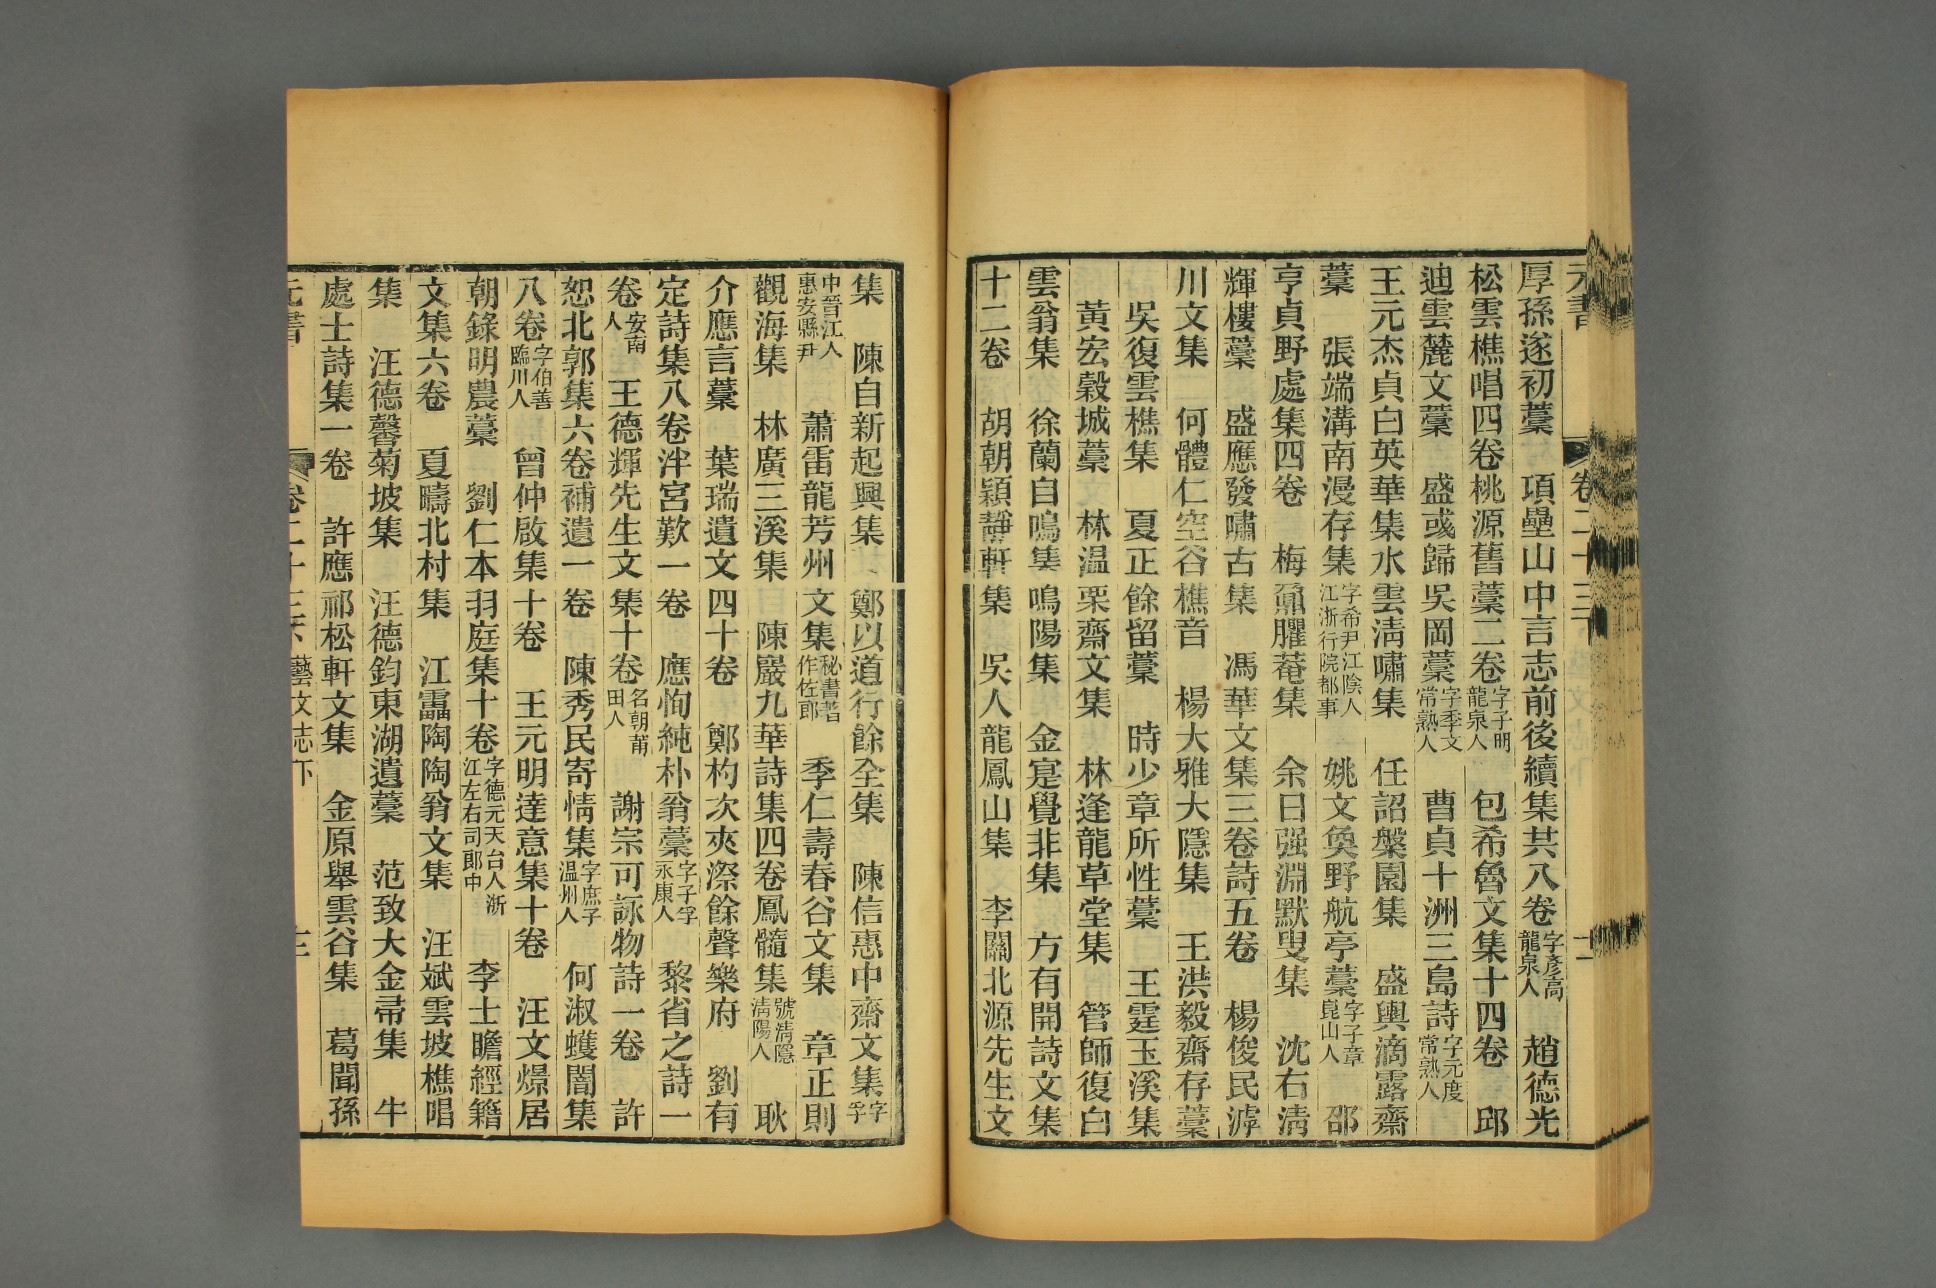 元書
卷二十三下
厚孫遂初藁　項壘山中言志前後續集共八卷字彥高龍泉人　趙德光
松雲樵唱四卷桃源舊藁二卷字子明龍泉人　包希魯文集十四卷　邱
迪雲麓文藁　盛彧歸吳岡藁字季文常熟人　曹貞十洲三島詩字元度常熟人
王元杰貞白英華集水雲淸嘯集　任詔槃園集　盛輿滴露齋
藁　張端溝南漫存集字希尹江陰人江浙行院都事　姚文奐野航亭藁字子章崑山人　邵
亨貞野處集四卷　梅鼐臞菴集　余日强淵默叟集　沈右淸
輝樓藁　盛應發嘯古集　馮華文集三卷詩五卷　楊俊民滹
川文集　何體仁空谷樵音　楊大雅大隱集　王洪毅齋存藁
　吳復雲樵集　夏正餘留藁　時少章所性藁　王霆玉溪集
　黃宏榖城藁　林温栗齋文集　林逢龍草堂集　管師復白
雲翁集　徐蘭自鳴集鳴陽集　金寔覺非集　方有開詩文集
十二卷　胡朝穎靜軒集　吳人龍鳳山集　李關北源先生文
集　陳自新起興集　鄭以道行餘全集　陳信惠中齋文集字孚
中晉江人惠安縣尹　蕭雷龍芳州文集秘書著作佐郎　季仁壽春谷文集　章正則
觀海集　林廣三溪集　陳巖九華詩集四卷鳳髓集號淸隱淸陽人　耿
介應言藁　葉瑞遺文四十卷　鄭杓次夾漈餘聲樂府　劉有
定詩集八卷泮宮歎一卷　應恂純朴翁藁字子孚永康人　黎省之詩一
卷安南人　王德輝先生文集十卷名朝莆田人　謝宗可詠物詩一卷　許
恕北郭集六卷補遺一卷　陳秀民寄情集字庶子温州人　何淑蠖闇集
八卷字伯善臨川人　曾仲啟集十卷　王元明達意集十卷　汪文燝居
朝錄明農藁　劉仁本羽庭集十卷字德元天台人浙江左右司郎中　李士瞻經籍
文集六卷　夏疇北村集　江靁陶陶翁文集　汪斌雲坡樵唱
集　汪德馨菊坡集　汪德鈞東湖遺藁　范致大金帚集　牛
處士詩集一卷　許應祁松軒文集　金原舉雲谷集　葛聞孫
元書
卷二十三下
藝文志下